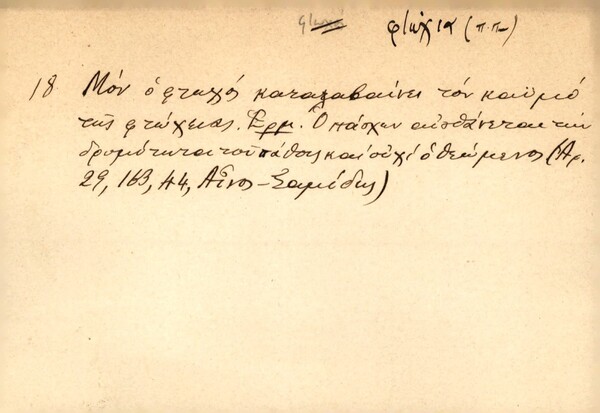 φτώχια (π.π.)
18 Μόν ὁ φτωχός καταλαβαίνει τόν καϋμό
τῆς φτώχειας. Ἑρμ. Ὁ πάσχων αἰσθάνεται τήν
δριμύτητα τοῦ πάθους καί οὐχί ὁ θεώμενος (Ἀρ.
29, 163, 44, Αἶνος - Σαμίδης)